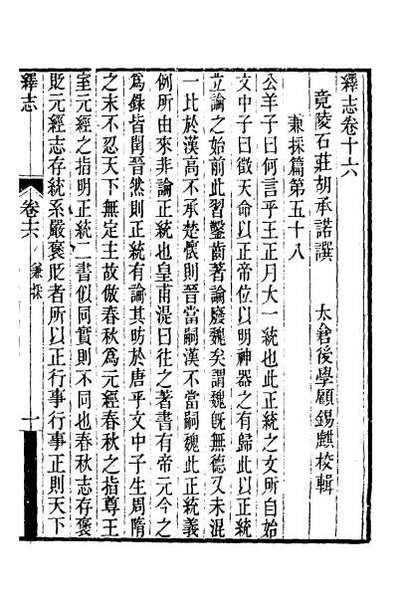 繹志卷十六
竟陵石莊胡承諾譔　太倉後學顧錫麒校輯
兼採篇第五十八
公羊子曰何言乎王正月大一統也此正統之文所自始
文中子曰徵天命以正帝位以明神器之有歸此以正統
立論之始前此習鑿齒著論廢魏矣謂魏旣無德又未混
一比於漢高不承楚懷則晉當嗣漢不當嗣魏此正統義
例所由來非論正統也皇甫湜曰往之著書有帝元今之
爲錄皆閏晉然則正統有論其昉於唐乎文中子生周隋
之末不忍天下無定主故倣春秋爲元經春秋之指尊王
室元經之指明正統二書似同實則不同也春秋志存褒
貶元經志存統系嚴褒貶者所以正行事行事正則天下
繹志
卷十六
兼採
一